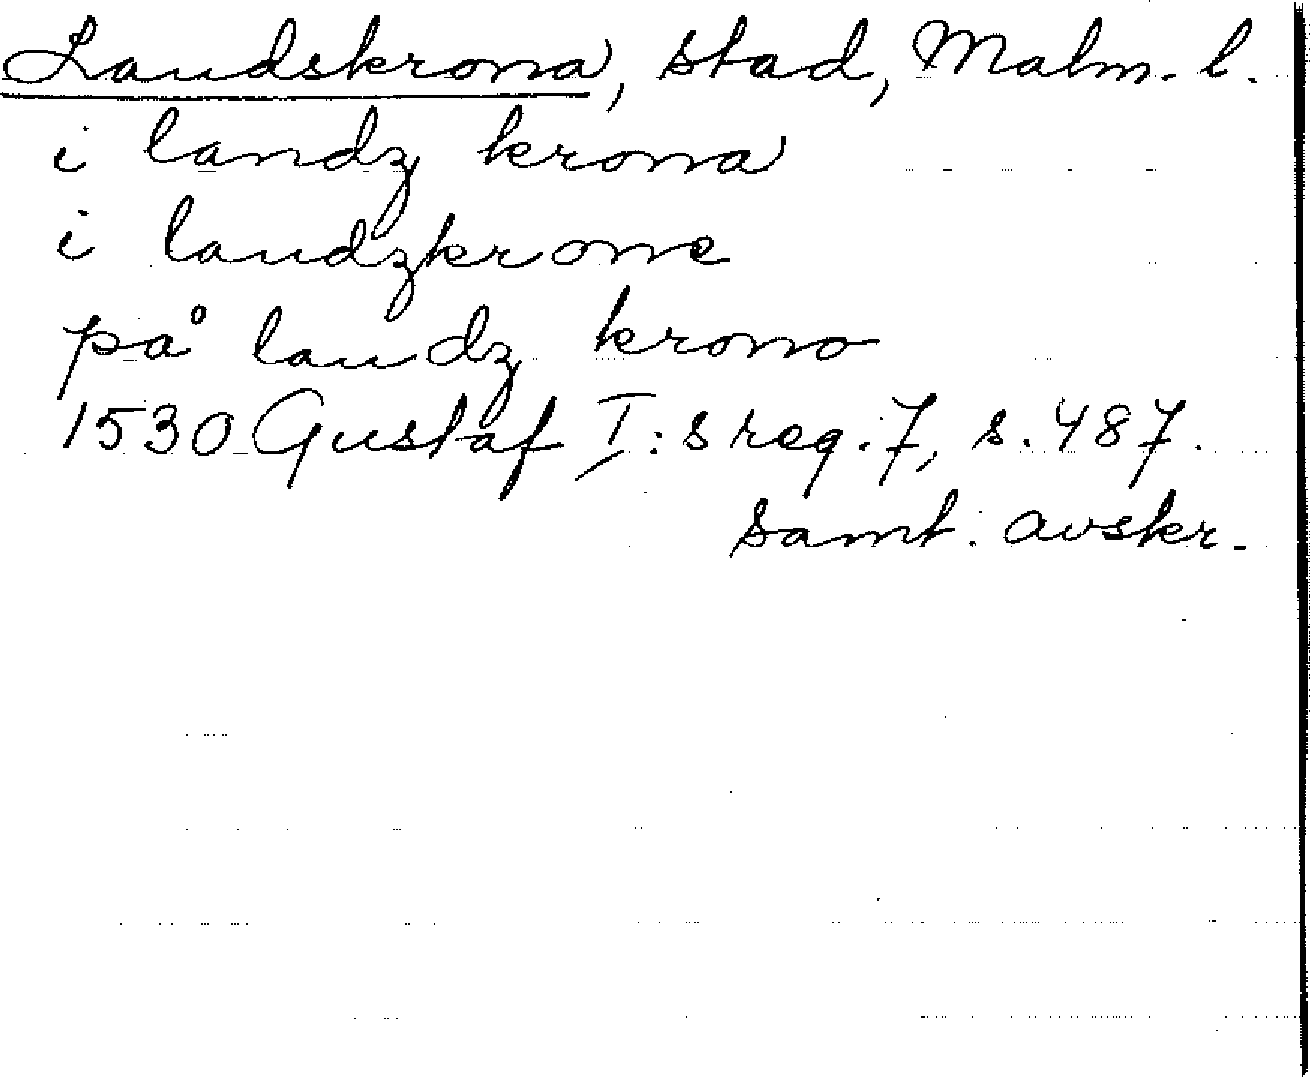 Landskrona, stad, Malm. l.
i landz krona
i landzkrone
på landz krono
1530 Gustaf I:s reg. 7, s. 487.
samt. avskr.